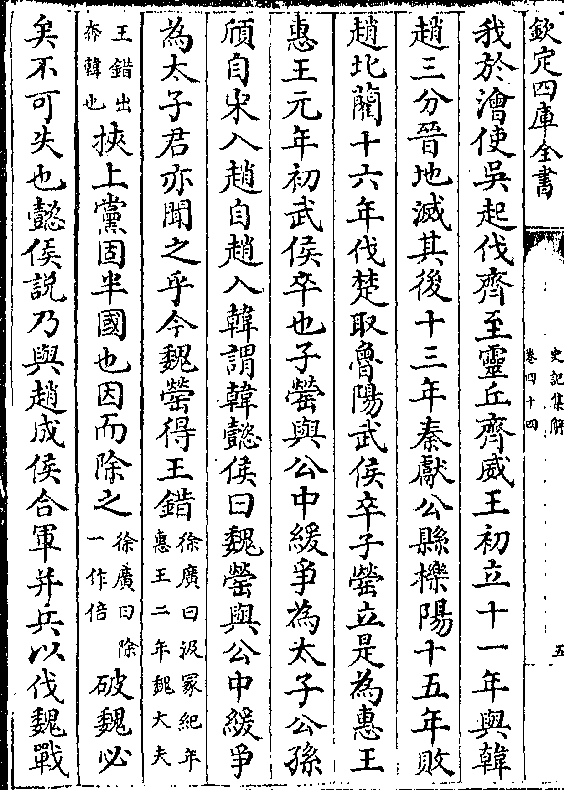 欽定四庫全書
史記集解
卷四十四
五
我於澮使吳起伐齊至靈丘齊威王初立十一年與韓
趙三分晉地滅其後十三年秦獻公縣櫟陽十五年敗
趙北藺十六年伐楚取魯陽武侯卒子罃立是為惠王
惠王元年初武侯卒也子罃與公中緩爭為太子公孫
頎自宋入趙自趙入韓謂韓懿侯曰魏罃與公中緩爭
為太子君亦聞之乎今魏罃得王錯徐廣曰汲冢紀年惠王二年魏大夫
王錯出奔韓也挾上黨固半國也因而除之徐廣曰除一作倍破魏必
矣不可失也懿侯說乃與趙成侯合軍并兵以伐魏戰